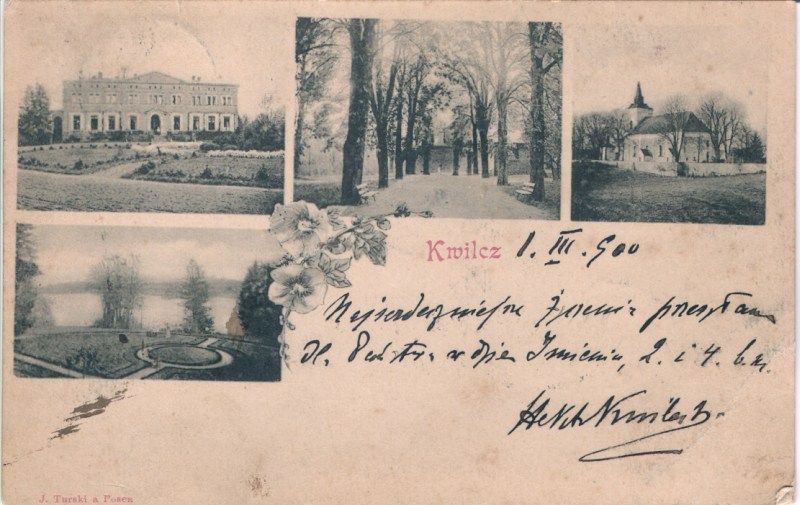 Kwilcz 1. III. 900
Najserdeczniejsze życzenia przesyłam
dl. Państwa w dzień Imienin, 2. i 4. b.m.
Hekt Kwilecki
J. Turski a Posen